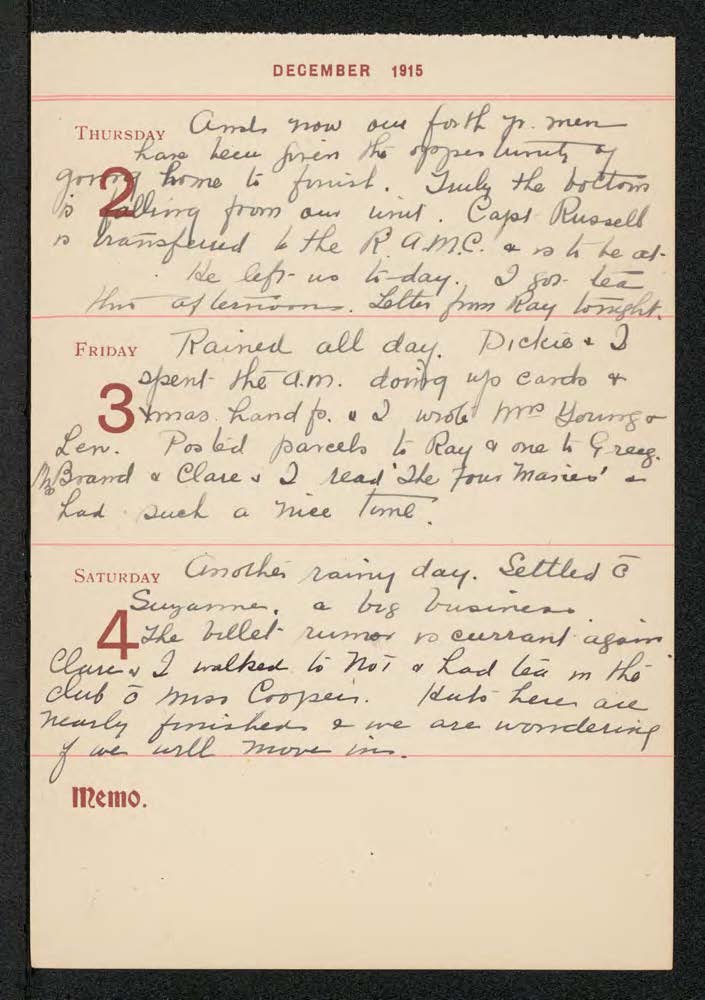 DECEMBER 1915
THURSDAY And now our forth yr. men
2 have been given the opportunity of
going home to finish. Truly the bottom
is falling from our unit. Capt Russell
is transferred to the R.A.M.C. & is to be at-
. He left us to-day. I got tea
this afternoon. Letter from Ray tonight.
FRIDAY Rained all day. Dickie & I
3 spent the a.m. doing up cards &
xmas handfs. & I wrote Mrs Young &
Len. Posted parcels to Ray & one to Greeg.
Brand & Clare & I read 'The Four Maries' &
had such a nice time.
SATURDAY Another rainy day. Settled c̄
4 Suzanne, a big business
The billet rumor is currant again
Clare & I walked to No 1 & had tea in the
club c̄ Miss Cooper. Huts here are
nearly finished & we are wondering
if we will move in.
Memo.